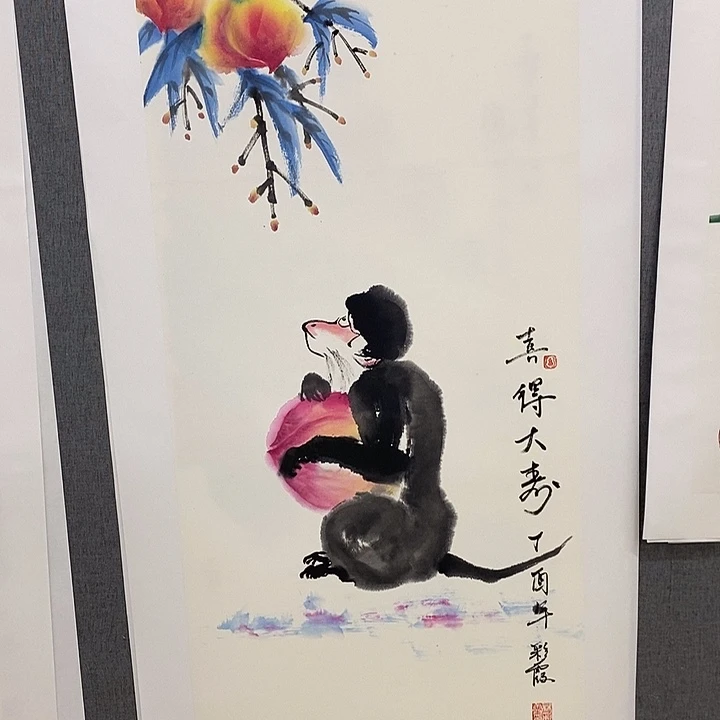 喜得大寿丁酉年彩霞